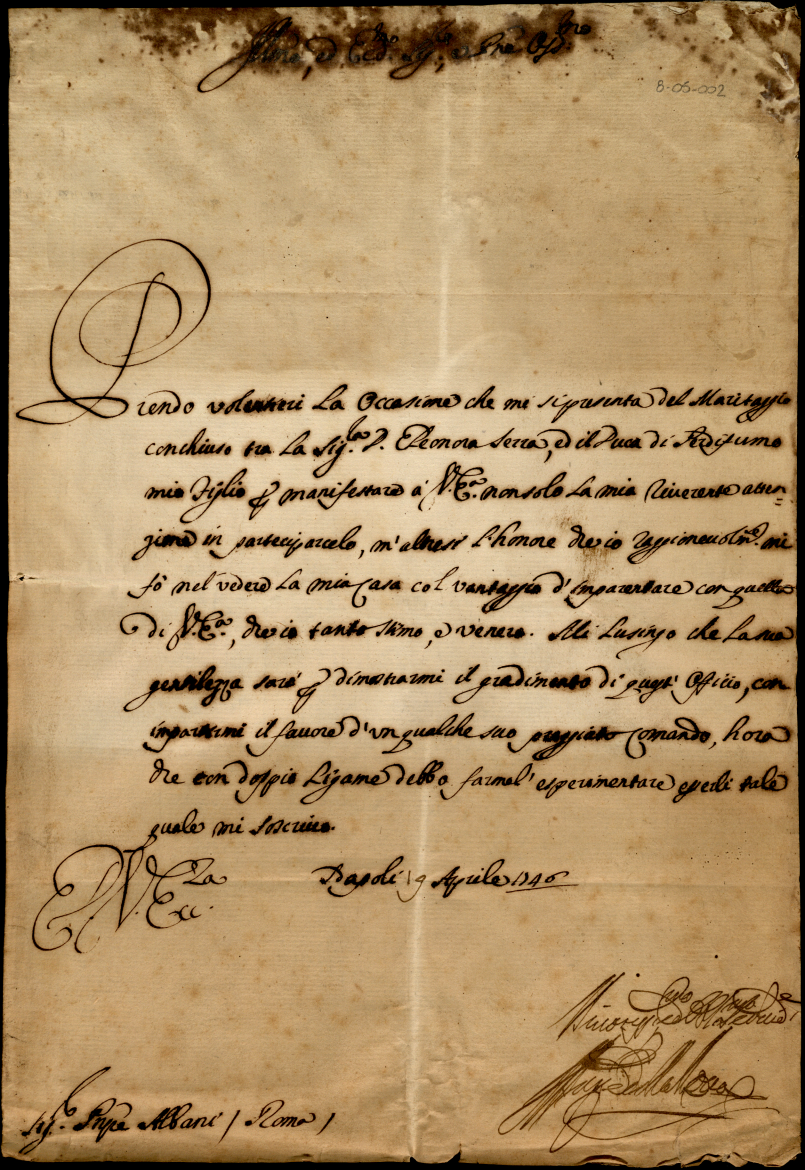 Illmo, ed Ecc.mo Sig.re, e Pne Oss.mo
8-05-002
Prendo volentieri La Occasione che mi si presenta del Maritaggio
conchiuso tra La Sig.ra D. Eleonora Serra, ed il Duca di Perdifumo
mio Figlio p manifestare a' V. E.za non solo La mia riverente atten=
zione in parteciparcelo, m'altresi L'honore che io
fò nel vedere La mia Casa col vantaggio d'imparentare con quella
di V. E.za, che io tanto stimo, e venero. Mi Lusingo che La sua
gentilezza sarà p dimostrarmi il gradimento di quest' Officio, con
impartirmi il favore d'un qualche suo preggiato Comando, hora
che con doppio Ligame debbo farmel' esperimentare esserli tale
quale mi soscrivo.
V. Ecc.za
Napoli 9 Aprile 1746
Sig.r Pnpe Albani / Roma /